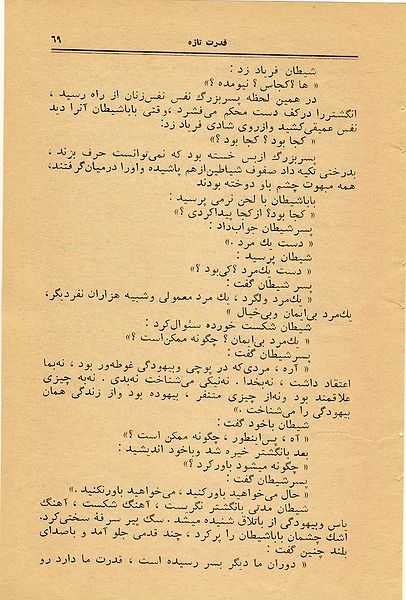 ۶۹
قدرت تازه
شیطان فریاد زد :
« ها ؟کجاس؟ نیومده ؟»
در همین لحظه پسربزرگ نفس نفس‌زنان از راه رسید ،
انگشتررا درکف دست محکم می‌فشرد ،وقتی باباشیطان آنرا دید
نفس عمیقی‌کشید وازروی شادی فریاد زد:
« کجا بود ؟ کجا بود ؟»
پسربزرگ ازبس خسته بود که نمی‌توانست حرف بزند ،
بدرختی تکیه داد صفوف شیاطین‌ازهم پاشیده واورا درمیان‌گرفتند،
همه مبهوت چشم باو دوخته بودند
باباشیطان با لحن نرمی پرسید :
« کجا بود؟ ازکجا پیداکردی ؟»
پسرشیطان جواب‌داد :
« دست یك مرد .»
شیطان پرسید :
« دست یك‌مرد ؟کی‌بود ؟»
پسر شیطان گفت :
« یك‌مرد ولگرد ، یك مرد معمولی وشبیه هزاران نفردیگر،
یك‌مرد بی‌ایمان وبی‌خیال »
شیطان شکست خورده سئوال‌کرد :
« یك‌مرد بی‌ایمان ؟ چگونه ممکن‌است ؟»
پسرشیطان گفت :
« آره ، مردی‌که در پوچی وبیهودگی غوطه‌ور بود ، نه‌بما
اعتقاد داشت ، نه‌بخدا . نه‌نیکی می‌شناخت نه‌بدی . نه‌به چیزی
علاقمند بود ونه‌از چیزی متنفر ، بیهوده بود واز زندگی همان
بیهودگی را می‌شناخت .»
شیطان باخود گفت :
« آه ، پس‌اینطور ، چگونه ممکن است ؟»
بعد بانگشتر خیره شد وباخود اندیشید :
« چگونه میشود باورکرد ؟»
پسرشیطان گفت :
« حال می‌خواهید باورکنید ، می‌خواهید باورنکنید .»
شیطان مدتی بانگشتر نگریست ، آهنگ شکست ، آهنگ
یاس وبیهودگی از باتلاق شنیده میشد . سگ پیر سرفهٔ سختی‌کرد.
اشك چشمان باباشیطان را پرکرد ، چند قدمی جلو آمد و باصدای
بلند چنین گفت :
« دوران ما دیگر بسر رسیده است ، قدرت ما دارد رو